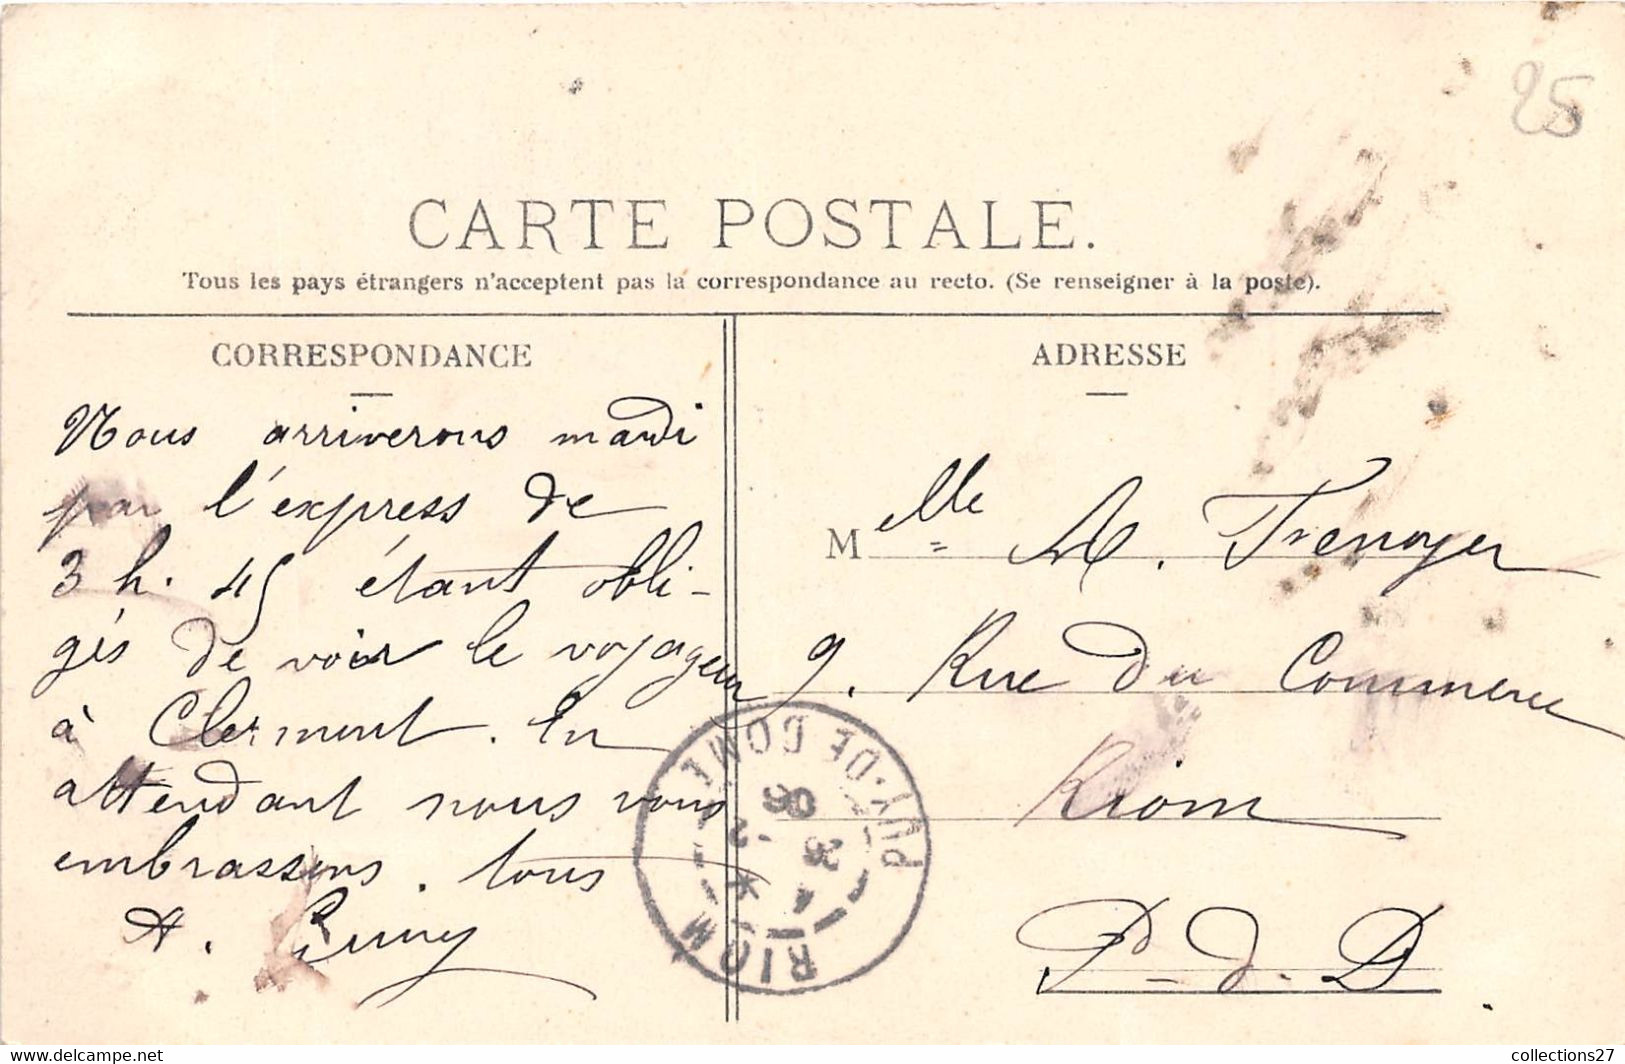 25
CARTE POSTALE.
Tous les pays étrangers n'acceptent pas la correspondance au recto. (Se renseigner à la poste).
CORRESPONDANCE
Nous arriverons mardi
par l'express de
3 h. 45 étant obli-
gés de voir le voyageur
à Clermont. En
attendant nous vous
embrassons. tous
A.
ADRESSE
Melle A. Trenoyer
9. Rue du Commerce
Riom
P-d-D
RIOM
PUY-DE-DOME
06
collections27